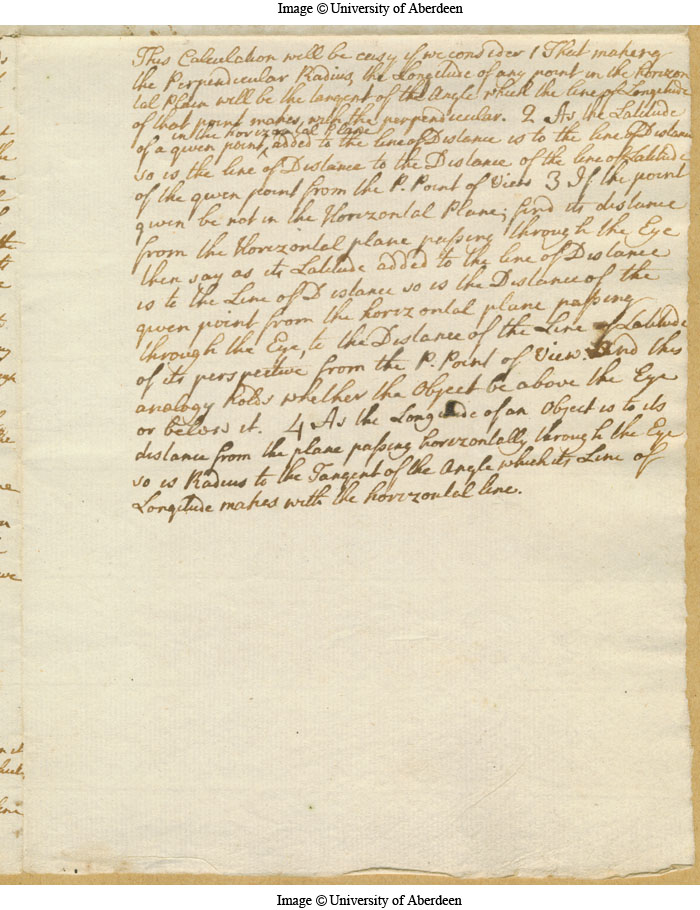 Image © University of Aberdeen
This Calculation will be easy if we consider 1 That making
the Perpendicular Radius, the Longitude of any point in the horizon
tal Plain will be the tangent of the Angle which the line of Longitude
of that point makes, with the perpendicular. 2 As the Latitude
in the horizontal Plane
of a given point, added to the line of Distance is to the line of Distance
so is the line of Distance to the Distance of the line of Latitude
of the given point from the P. Point of View 3 If the point
given be not in the Horizontal Plane; find its distance
from the Horizontal plane passing through the Eye
then say as its Latitude added to the line of Distance
is to the Line of Distance so is the Distance of the
given point from the horizontal plane passing
through the Eye, to the Distance of the Line of Latitude
of its perspective from the P. Point of View. And this
analogy holds whether the Object be above the Eye
or below it. 4 As the Longitude of an Object is to its
distance from the plane passing horizontally through the Eye
so is Radius to the Tangent of the Angle which its Line of
Longitude makes with the horizontal line.
Image © University of Aberdeen